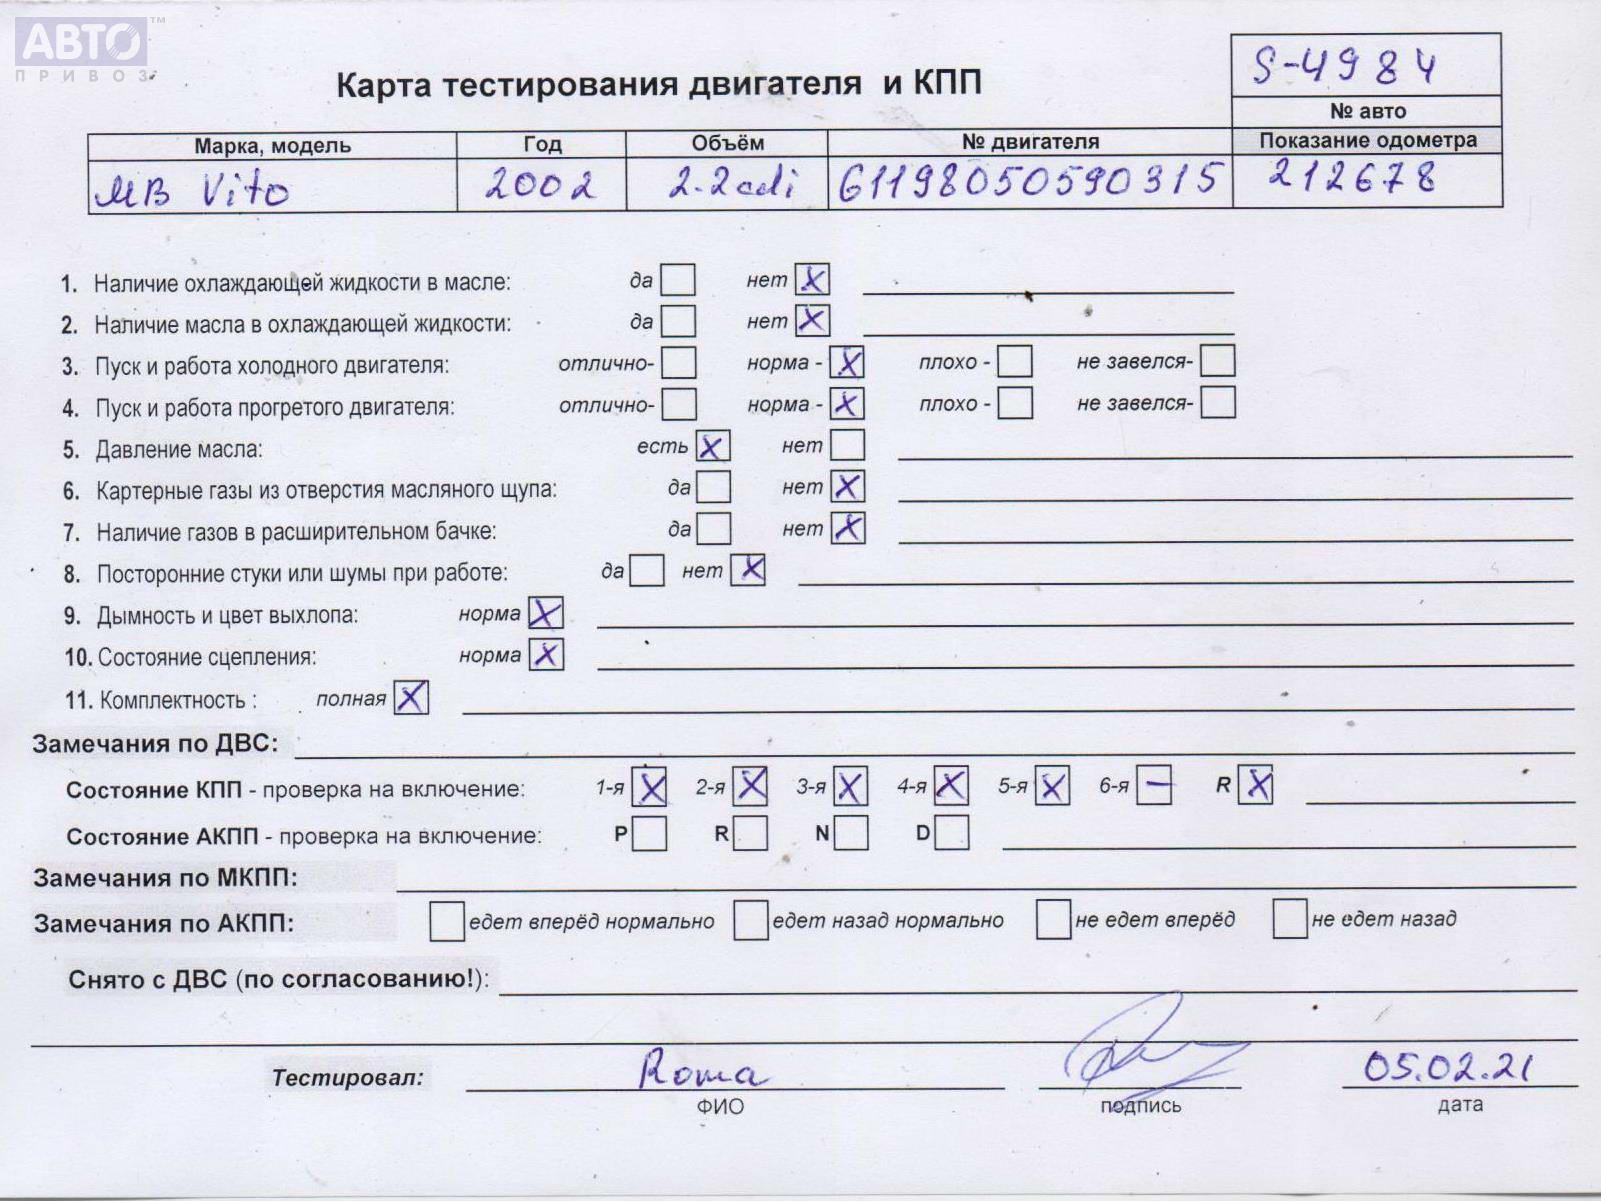 АВТО™
ПРИВОЗ
S-4984
Карта тестирования двигателя и КПП
№ авто
Марка, модель Год Объём № двигателя Показание одометра
MB Vito 2002 2.2cdi 61198050590315 212678
1. Наличие охлаждающей жидкости в масле: да нет X
2. Наличие масла в охлаждающей жидкости: да нет X
3. Пуск и работа холодного двигателя: отлично- норма - X плохо - не завелся-
4. Пуск и работа прогретого двигателя: отлично- норма - X плохо - не завелся-
5. Давление масла: есть X нет
6. Картерные газы из отверстия масляного щупа: да нет X
7. Наличие газов в расширительном бачке: да нет X
8. Посторонние стуки или шумы при работе: да нет X
9. Дымность и цвет выхлопа: норма X
10. Состояние сцепления: норма X
11. Комплектность : полная X
Замечания по ДВС:
Состояние КПП - проверка на включение: 1-я X 2-я X 3-я X 4-я X 5-я X 6-я – R X
Состояние АКПП - проверка на включение: P R N D
Замечания по МКПП:
Замечания по АКПП: едет вперёд нормально едет назад нормально не едет вперёд не едет назад
Снято с ДВС (по согласованию!):
Тестировал: Roma 05.02.21
ФИО подпись дата